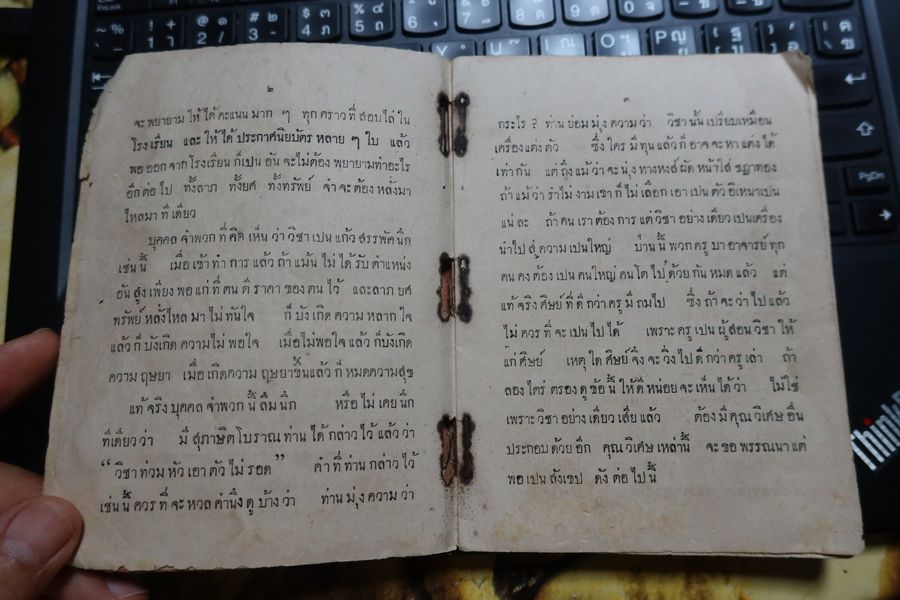 ๒
จะพยายามให้ได้คะแนนมาก ๆ ทุกคราวที่สอบไล่ใน
โรงเรียน และให้ได้ประกาศนิยบัตรหลาย ๆ ใบ แล้ว
พอออกจากโรงเรียนก็เปนอันจะไม่ต้องพยายามทำอะไร
อีกต่อไป ทั้งลาภ ทั้งยศ ทั้งทรัพย์ จำจะต้องหลั่งมา
ไหลมาทีเดียว
บุคคลจำพวกที่คิดเห็นว่าวิชาเปนแก้วสรรพัดนึก
เช่นนี้ เมื่อเข้าทำการแล้วถ้าแม้นไม่ได้รับตำแหน่ง
อันสูงเพียงพอแก่ที่ตนตีราคาของตนไว้ และลาภยศ
ทรัพย์หลั่งไหลมาไม่ทันใจ ก็บังเกิดความหลากใจ
แล้วก็บังเกิดความไม่พอใจ เมื่อไม่พอใจแล้วก็บังเกิด
ความฤษยา เมื่อเกิดความฤษยาขึ้นแล้วก็หมดความสุข
แท้จริงบุคคลจำพวกนี้ลืมนึก หรือไม่เคยนึก
ทีเดียวว่า มีสุภาษิตโบราณท่านได้กล่าวไว้แล้วว่า
“วิชาท่วมหัวเอาตัวไม่รอด” คำที่ท่านกล่าวไว้
เช่นนี้ควรที่จะหวลคำนึงดูบ้างว่า ท่านมุ่งความว่า
๓
กระไร ? ท่านย่อมมุ่งความว่า วิชานั้นเปรียบเหมือน
เครื่องแต่งตัว ซึ่งใครมีทุนแล้วก็อาจจะหาแต่งได้
เท่ากัน แต่ถึงแม้ว่าจะนุ่งหางหงส์ผัดหน้าใส่ชฎาทอง
ถ้าแม้ว่ารำไม่งามเขาก็ไม่เลือกเอาเปนตัวอิเหนาเปน
แน่ละ ถ้าคนเราต้องการแต่วิชาอย่างเดียวเปนเครื่อง
นำไปสู่ความเปนใหญ่ ป่านนี้พวกครูบาอาจารย์ทุก
คนคงต้องเปนคนใหญ่คนโตไปด้วยกันหมดแล้ว แต่
แท้จริงศิษย์ที่ดีกว่าครูมีถมไป ซึ่งถ้าจะว่าไปแล้ว
ไม่ควรที่จะเปนไปได้ เพราะครูเปนผู้สอนวิชาให้
แก่ศิษย์ เหตุใดศิษย์จึ่งจะวิ่งไปดีกว่าครูเล่า ถ้า
ลองไตร่ตรองดูข้อนี้ให้ดีหน่อยจะเห็นได้ว่า ไม่ใช่
เพราะวิชาอย่างเดียวเสียแล้ว ต้องมีคุณวิเศษอื่น
ประกอบด้วยอีก คุณวิเศษเหล่านี้ จะขอพรรณนาแต่
พอเปนสังเขป ดังต่อไปนี้